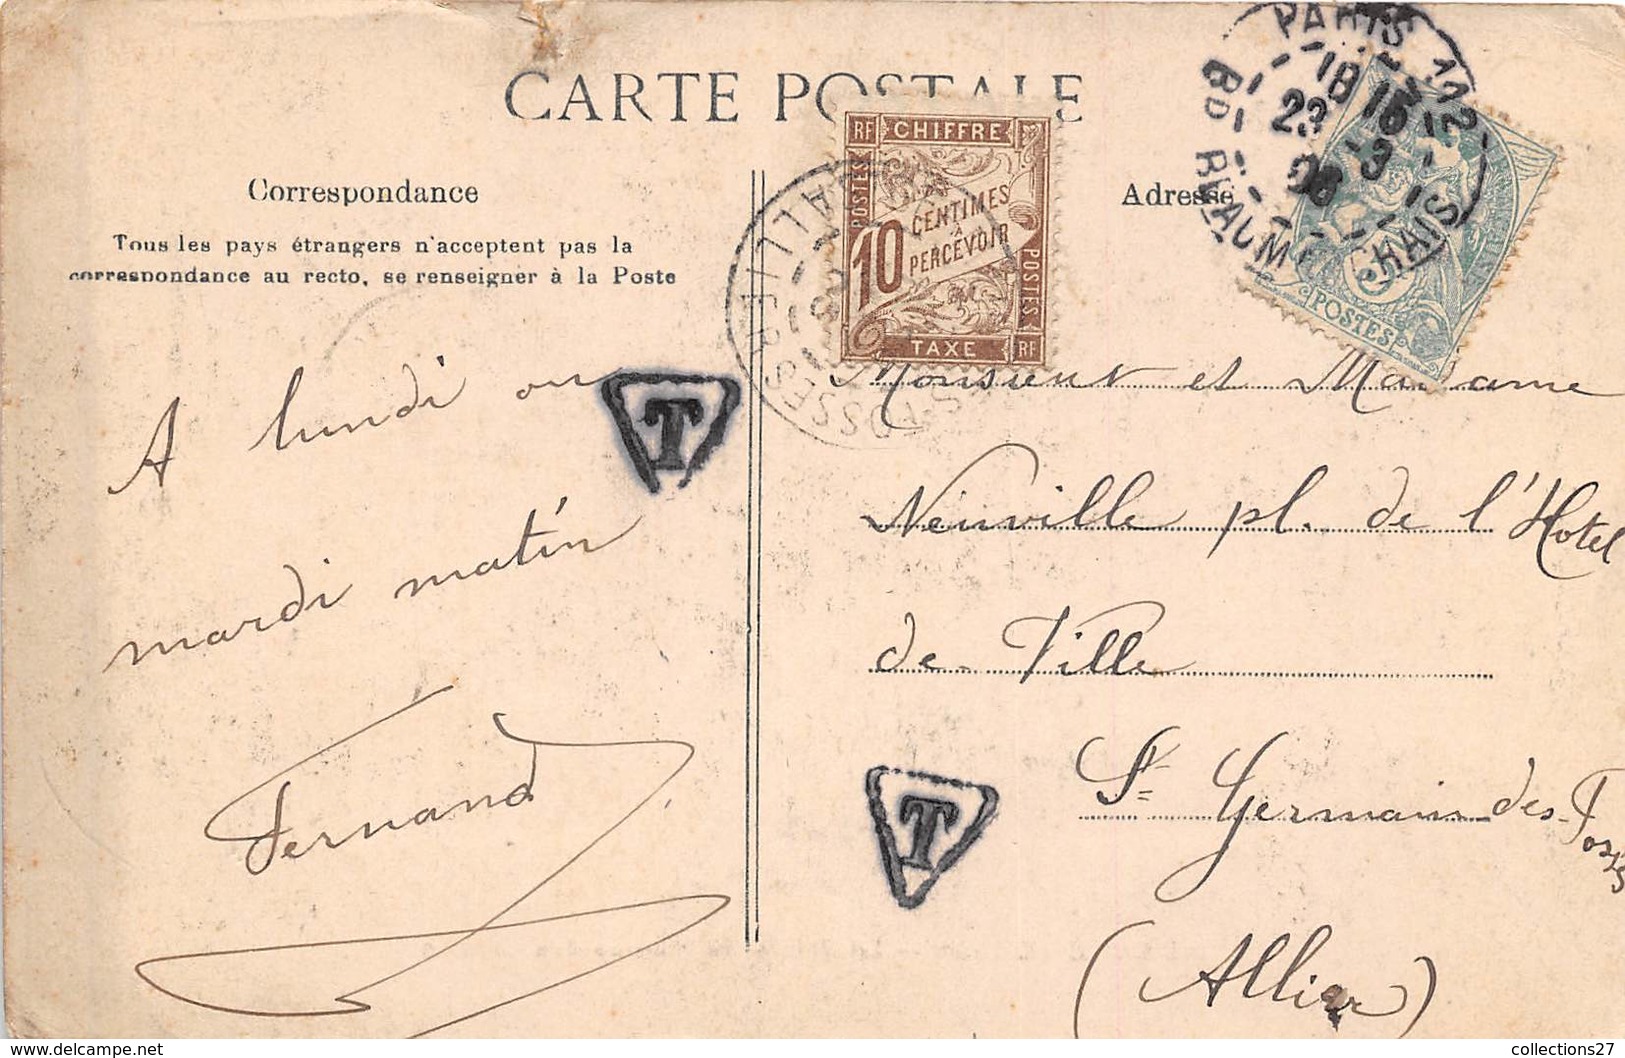 CARTE POSTALE
Correspondance
Tous les pays étrangers n'acceptent pas la
correspondance au recto, se renseigner à la Poste
A lundi ou
mardi matin
Fernand
T
RF CHIFFRE
POSTES
10 CENTIMES
à
PERCEVOIR
POSTES
TAXE RF
PARIS 112
18 15
23 - 3
06
BD BEAUMARCHAIS
5
POSTES
Adresse
Monsieur et Madame
Neuville pl. de l'Hotel
de Ville
St Germain des Fossés
(Allier)
T
collections27